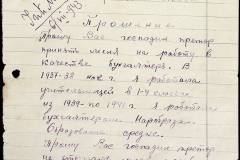 Прошение
Прошу Вас господин претор
принять меня на работу в
качестве бухгалтера. В
1937-38 г. я работала
учительницей в 1-4 классах
из 1939 по 1941 г. я работала
бухгалтером Нарпрода.
Образование среднее.
Прошу Вас господин претор
не отказать